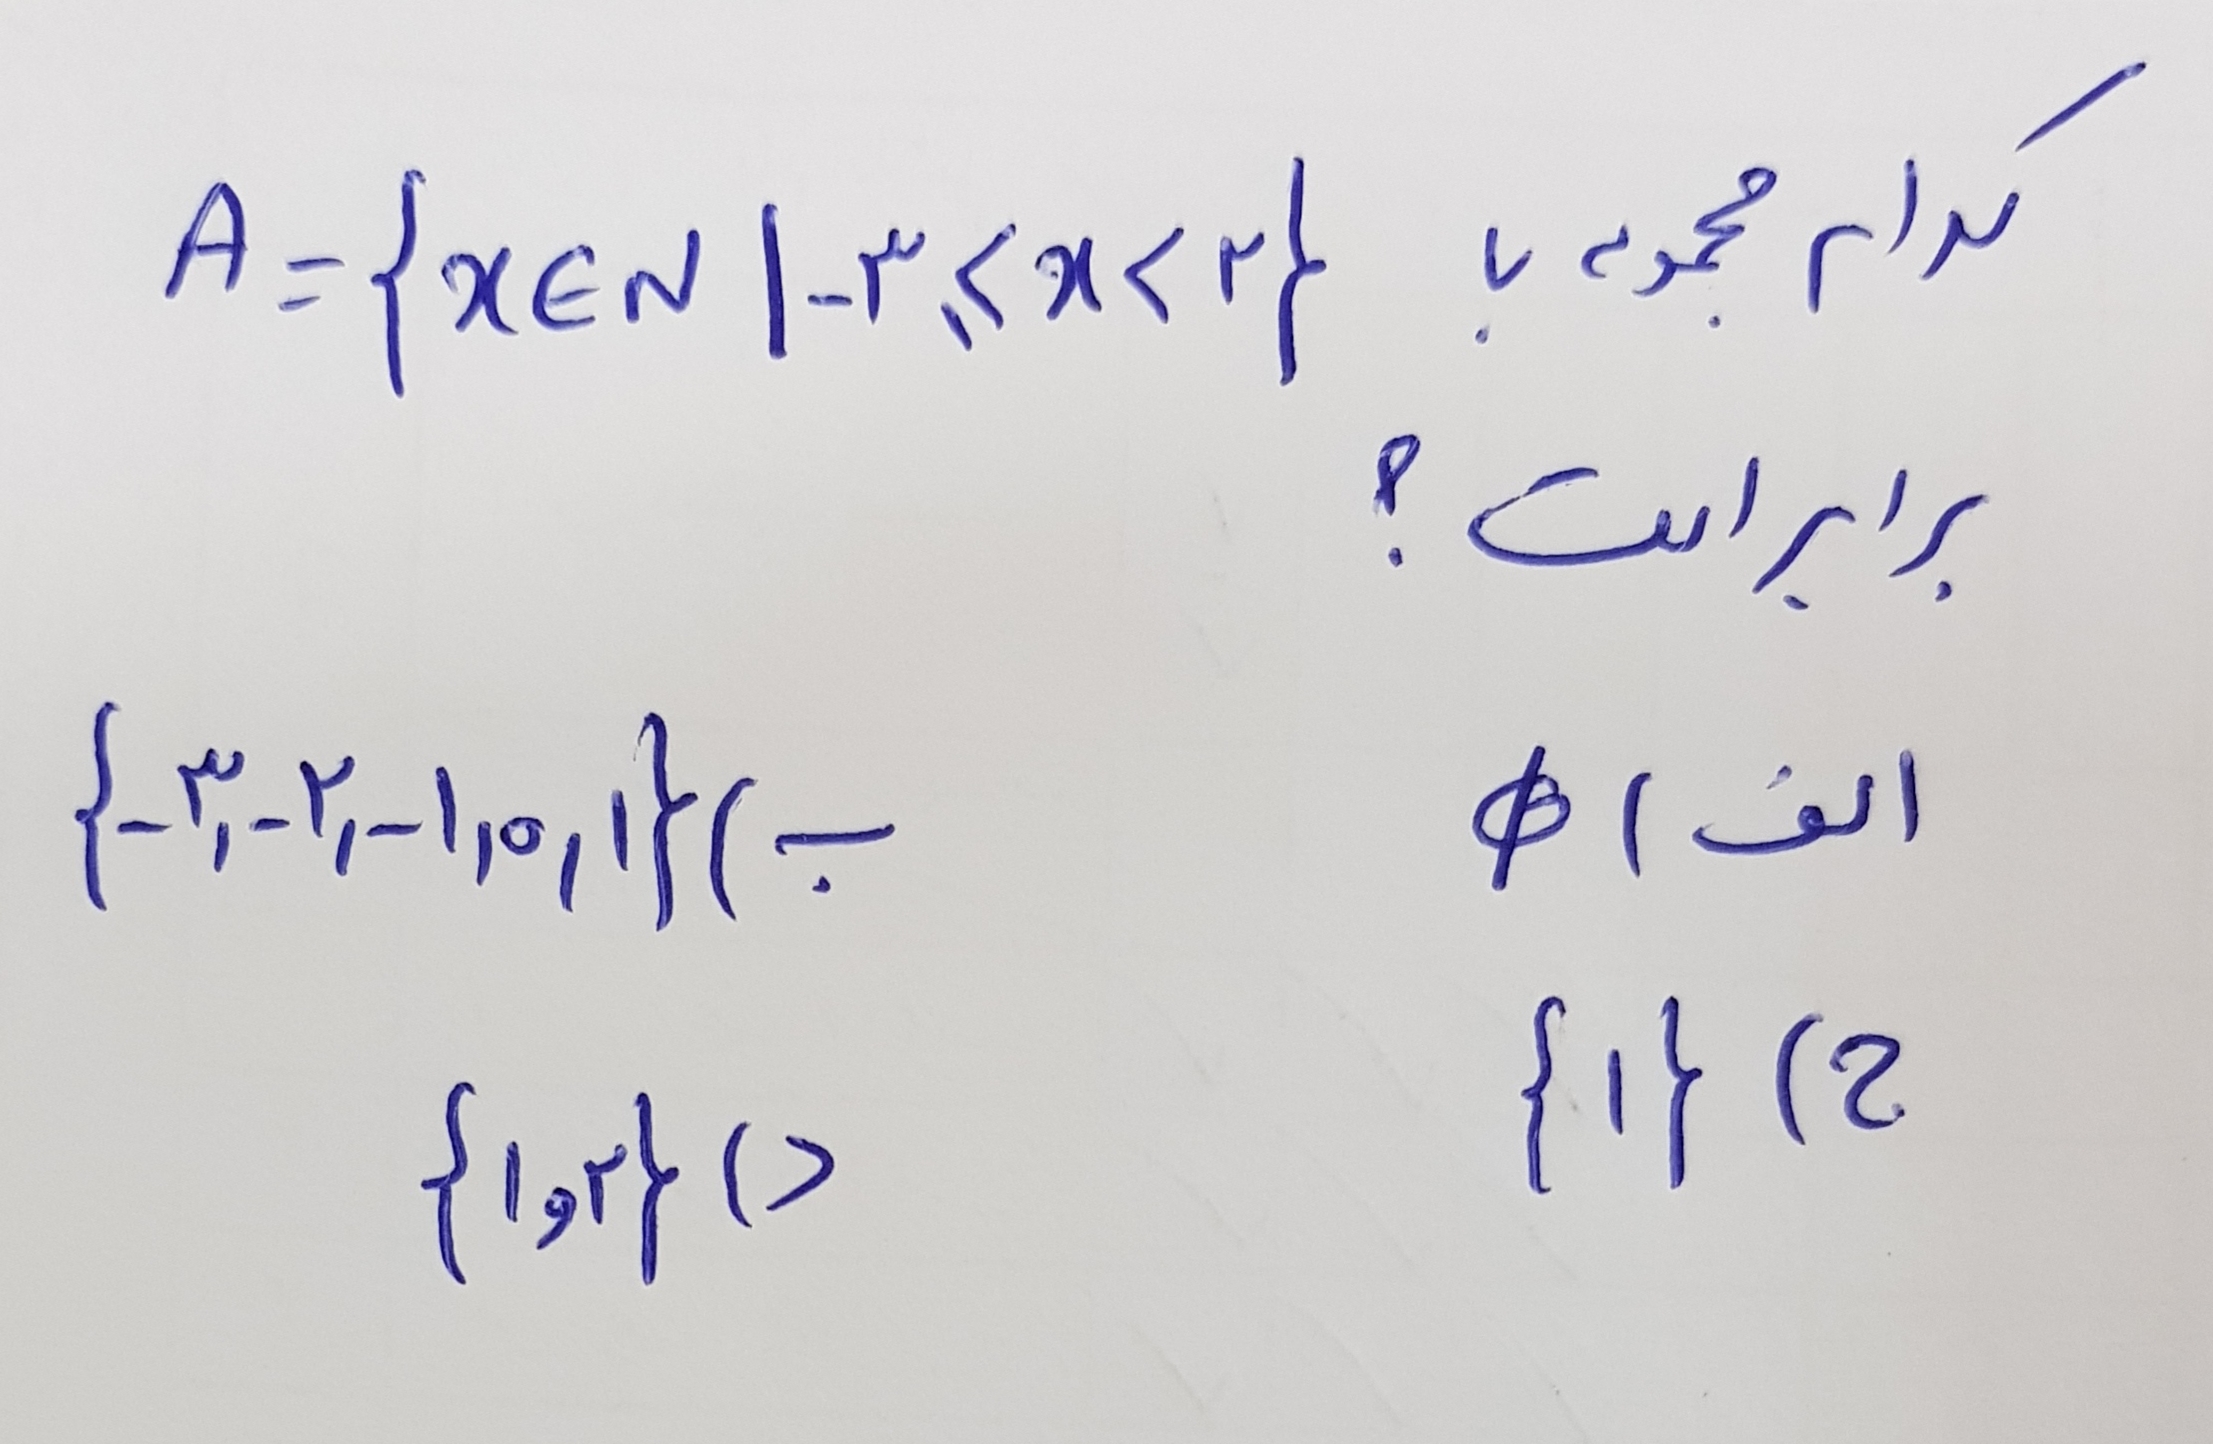 کدام مجموعه با A = {x ∈ N | -۳ ≤ x < ۲}
برابر است ؟
الف) ∅ ب) {-۳, -۲, -۱, ۰, ۱}
ج) {۱} د) {۱و۲}